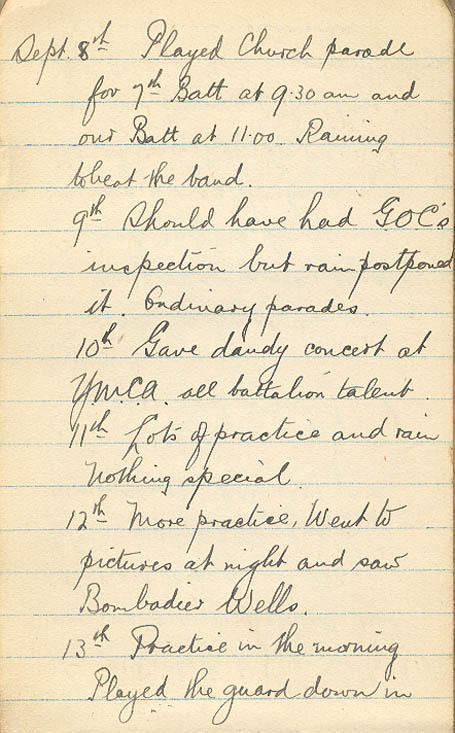 Sept. 8th Played Church parade
for 7th Batt at 9.30 am and
our Batt at 11.00. Raining
to beat the band.
9th Should have had G.O.C's
inspection but rain postponed
it. Ordinary parades.
10th Gave dandy concert at
Y.M.C.A. all battalion talent.
11th Lots of practice and rain
Nothing special.
12th More practice. Went to
pictures at night and saw
Bombadier Wells.
13th Practice in the morning
Played the guard down in